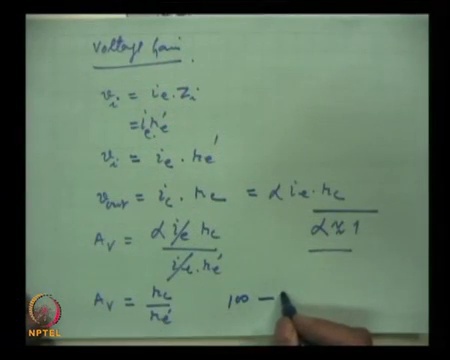 Voltage Gain
v_i = i_e . Z_i
= i_e r_e'
v_i = i_e . r_e'
v_out = i_c . r_c = α i_e . r_c
A_v = α i_e r_c / i_e . r_e' α ≈ 1
A_v = r_c / r_e' 100 –
NPTEL